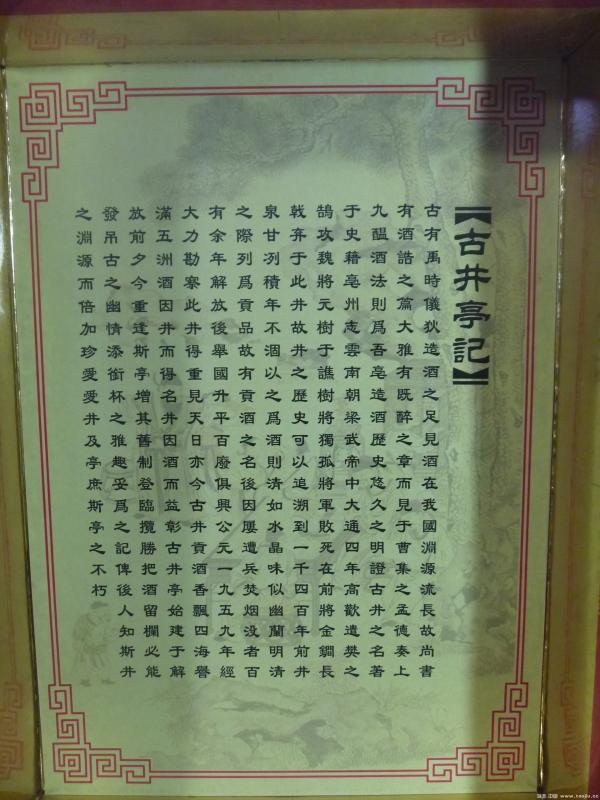 【古井亭記】
古有禹時儀狄造酒之足見酒在我國淵源流長故尚書
有酒誥之篇大雅有既醉之章而見于曹集之孟德奏上
九醞酒法則爲吾亳造酒歷史悠久之明證古井之名著
于史藉亳州志雲南朝梁武帝中大通四年高歡遣樊之
鵠攻魏將元樹于譙樹將獨孤將軍敗死在前將金鐧長
戟弃于此井故井之歷史可以追溯到一千四百年前井
泉甘冽積年不涸以之爲酒則清如水晶味似幽蘭明清
之際列爲貢品故有貢酒之名後因屢遭兵焚烟没者百
有余年解放後舉國升平百廢俱興公元一九五九年經
大力勘察此井得重見天日亦今古井貢酒香飄四海譽
滿五洲酒因井而得名井因酒而益彰古井亭始建于解
放前夕今重逹斯亭增其舊制登臨攬勝把酒留欄必能
發吊古之幽情添銜杯之雅趣妥爲之記俾後人知斯井
之淵源而倍加珍愛愛井及亭庶斯亭之不朽